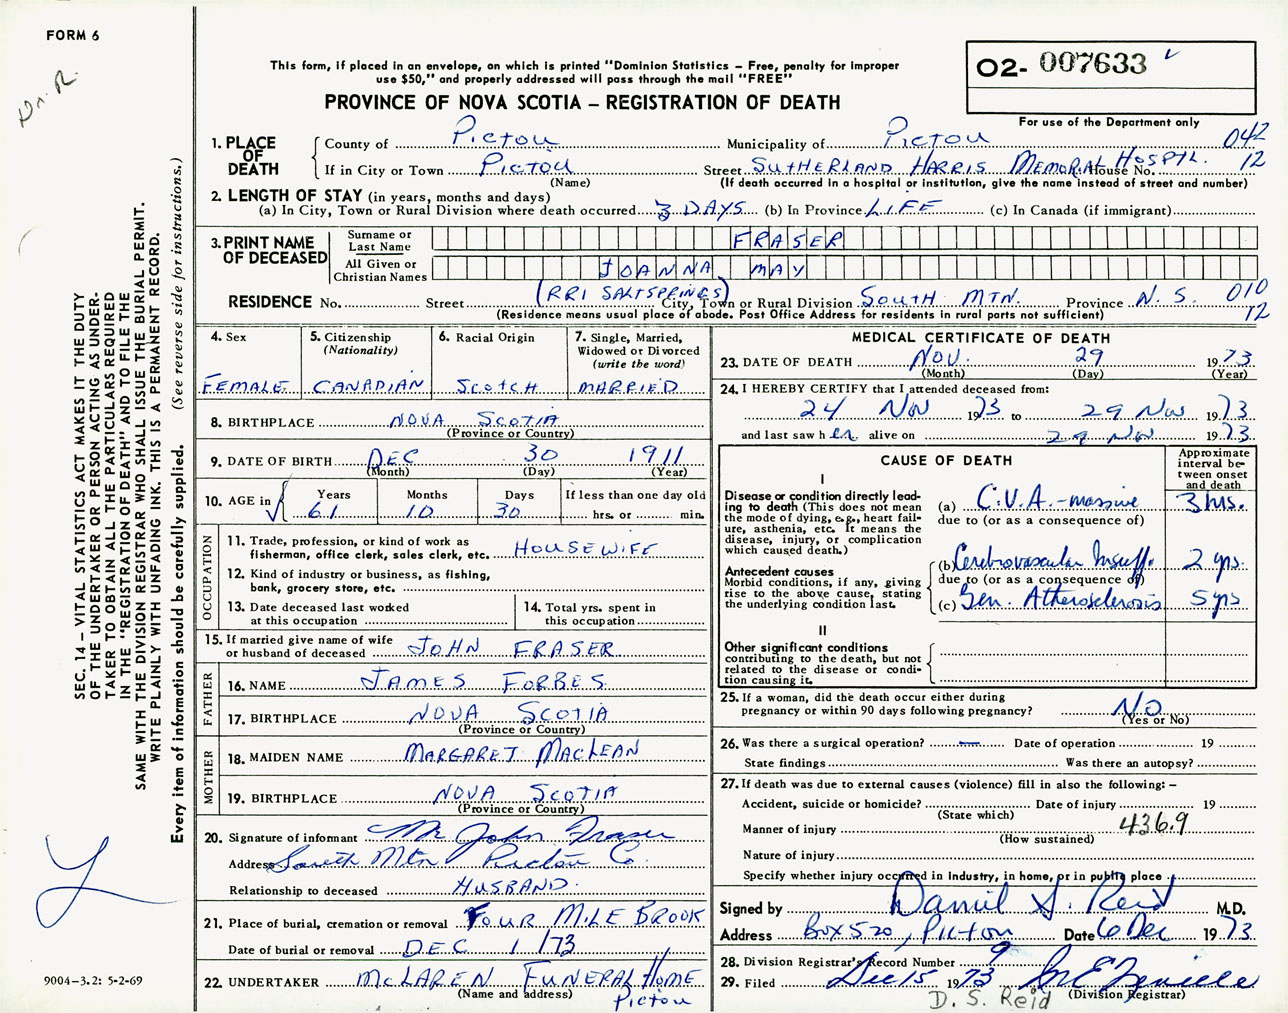 FORM 6
Dr. R.
O2- 007633
This form, if placed in an envelope, on which is printed "Dominion Statistics – Free, penalty for improper
use $50," and properly addressed will pass through the mail "FREE"
PROVINCE OF NOVA SCOTIA – REGISTRATION OF DEATH
For use of the Department only
1. PLACE OF DEATH
County of PICTOU Municipality of PICTOU 042
If in City or Town PICTOU Street SUTHERLAND HARRIS MEMORIAL HOSPTL. House No. 12
(Name) (If death occurred in a hospital or institution, give the name instead of street and number)
2. LENGTH OF STAY (in years, months and days)
(a) In City, Town or Rural Division where death occurred 3 DAYS (b) In Province LIFE (c) In Canada (if immigrant)
3. PRINT NAME OF DECEASED
Surname or Last Name FRASER
All Given or Christian Names JOANNA MAY
RESIDENCE No. Street (RR1 SALTSPRINGS) City, Town or Rural Division SOUTH MTN. Province N. S. 010
(Residence means usual place of abode. Post Office Address for residents in rural parts not sufficient) 12
4. Sex FEMALE
5. Citizenship (Nationality) CANADIAN
6. Racial Origin SCOTCH
7. Single, Married, Widowed or Divorced (write the word) MARRIED
8. BIRTHPLACE NOVA SCOTIA
(Province or Country)
9. DATE OF BIRTH DEC 30 1911
(Month) (Day) (Year)
10. AGE in Years 61 Months 10 Days 30 If less than one day old hrs. or min.
OCCUPATION
11. Trade, profession, or kind of work as
fisherman, office clerk, sales clerk, etc. HOUSEWIFE
12. Kind of industry or business, as fishing,
bank, grocery store, etc.
13. Date deceased last worked
at this occupation
14. Total yrs. spent in
this occupation
15. If married give name of wife
or husband of deceased JOHN FRASER
FATHER
16. NAME JAMES FORBES
17. BIRTHPLACE NOVA SCOTIA
(Province or Country)
MOTHER
18. MAIDEN NAME MARGARET MACLEAN
19. BIRTHPLACE NOVA SCOTIA
(Province or Country)
20. Signature of informant Mr John Fraser
Address South Mtn Pictou Co.
Relationship to deceased HUSBAND.
21. Place of burial, cremation or removal FOUR MILE BROOK
Date of burial or removal DEC 1 /73
22. UNDERTAKER MCLAREN FUNERAL HOME
(Name and address) Pictou
MEDICAL CERTIFICATE OF DEATH
23. DATE OF DEATH NOV. 29 1973
(Month) (Day) (Year)
24. I HEREBY CERTIFY that I attended deceased from:
24 Nov 1973 to 29 Nov 1973
and last saw her alive on 29 Nov 1973
CAUSE OF DEATH
Approximate interval between onset and death
I
Disease or condition directly leading
to death (This does not mean
the mode of dying, e.g., heart failure,
asthenia, etc. It means the
disease, injury, or complication
which caused death.)
(a) C.V.A. – massive 3 hrs.
due to (or as a consequence of)
Antecedent causes
Morbid conditions, if any, giving
rise to the above cause, stating
the underlying condition last.
(b) Cerebrovascular Insuff. 2 yrs.
due to (or as a consequence of)
(c) Gen. Atherosclerosis 5 yrs
II
Other significant conditions
contributing to the death, but not
related to the disease or condition
causing it.
25. If a woman, did the death occur either during
pregnancy or within 90 days following pregnancy? NO
(Yes or No)
26. Was there a surgical operation? — Date of operation 19
State findings Was there an autopsy?
27. If death was due to external causes (violence) fill in also the following: –
Accident, suicide or homicide? Date of injury 19
(State which)
Manner of injury 436.9
(How sustained)
Nature of injury
Specify whether injury occurred in industry, in home, or in public place
Signed by Daniel S. Reid M.D.
Address Box 520, Pictou Date 6 Dec 1973
28. Division Registrar's Record Number 9
29. Filed Dec 15 1973
(Division Registrar)
D. S. Reid
SEC. 14 – VITAL STATISTICS ACT MAKES IT THE DUTY
OF THE UNDERTAKER OR PERSON ACTING AS UNDERTAKER
TO OBTAIN ALL THE PARTICULARS REQUIRED
IN THE "REGISTRATION OF DEATH" AND TO FILE THE
SAME WITH THE DIVISION REGISTRAR WHO SHALL ISSUE THE BURIAL PERMIT.
WRITE PLAINLY WITH UNFADING INK. THIS IS A PERMANENT RECORD.
Every item of information should be carefully supplied. (See reverse side for instructions.)
9004–3.2: 5-2-69